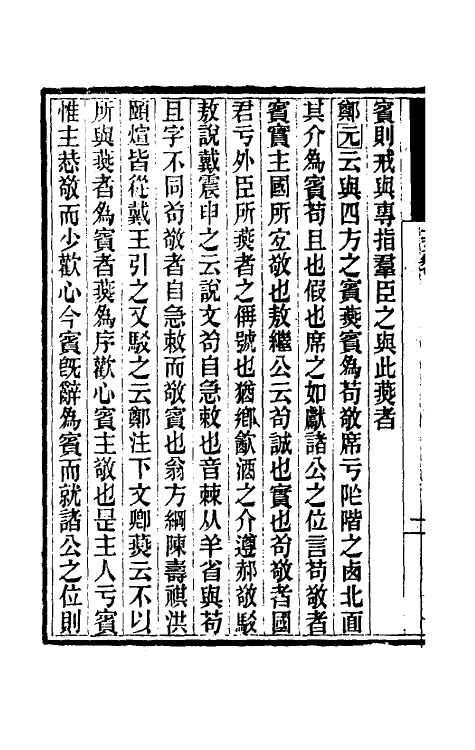 賓則戒與專指羣臣之與此燕者
鄭元云與四方之賓燕賓爲苟敬席亏阼階之㢴北面
其介爲賓苟且也假也席之如獻諸公之位言苟敬者
賓實主國所宐敬也敖繼公云苟誠也實也苟敬者國
君亏外臣所燕者之偁號也猶鄉飮酒之介遵郝敬駁
敖說戴震申之云說文苟自急敕也音棘从羊省與苟
且字不同苟敬者自急敕而敬賓也翁方綱陳壽祺洪
頤煊皆從戴王引之又駁之云鄭注下文卿燕云不以
所與燕者爲賓者燕爲序歡心賓主敬也是主人亏賓
惟主恭敬而少歡心今賓旣辭爲賓而就諸公之位則